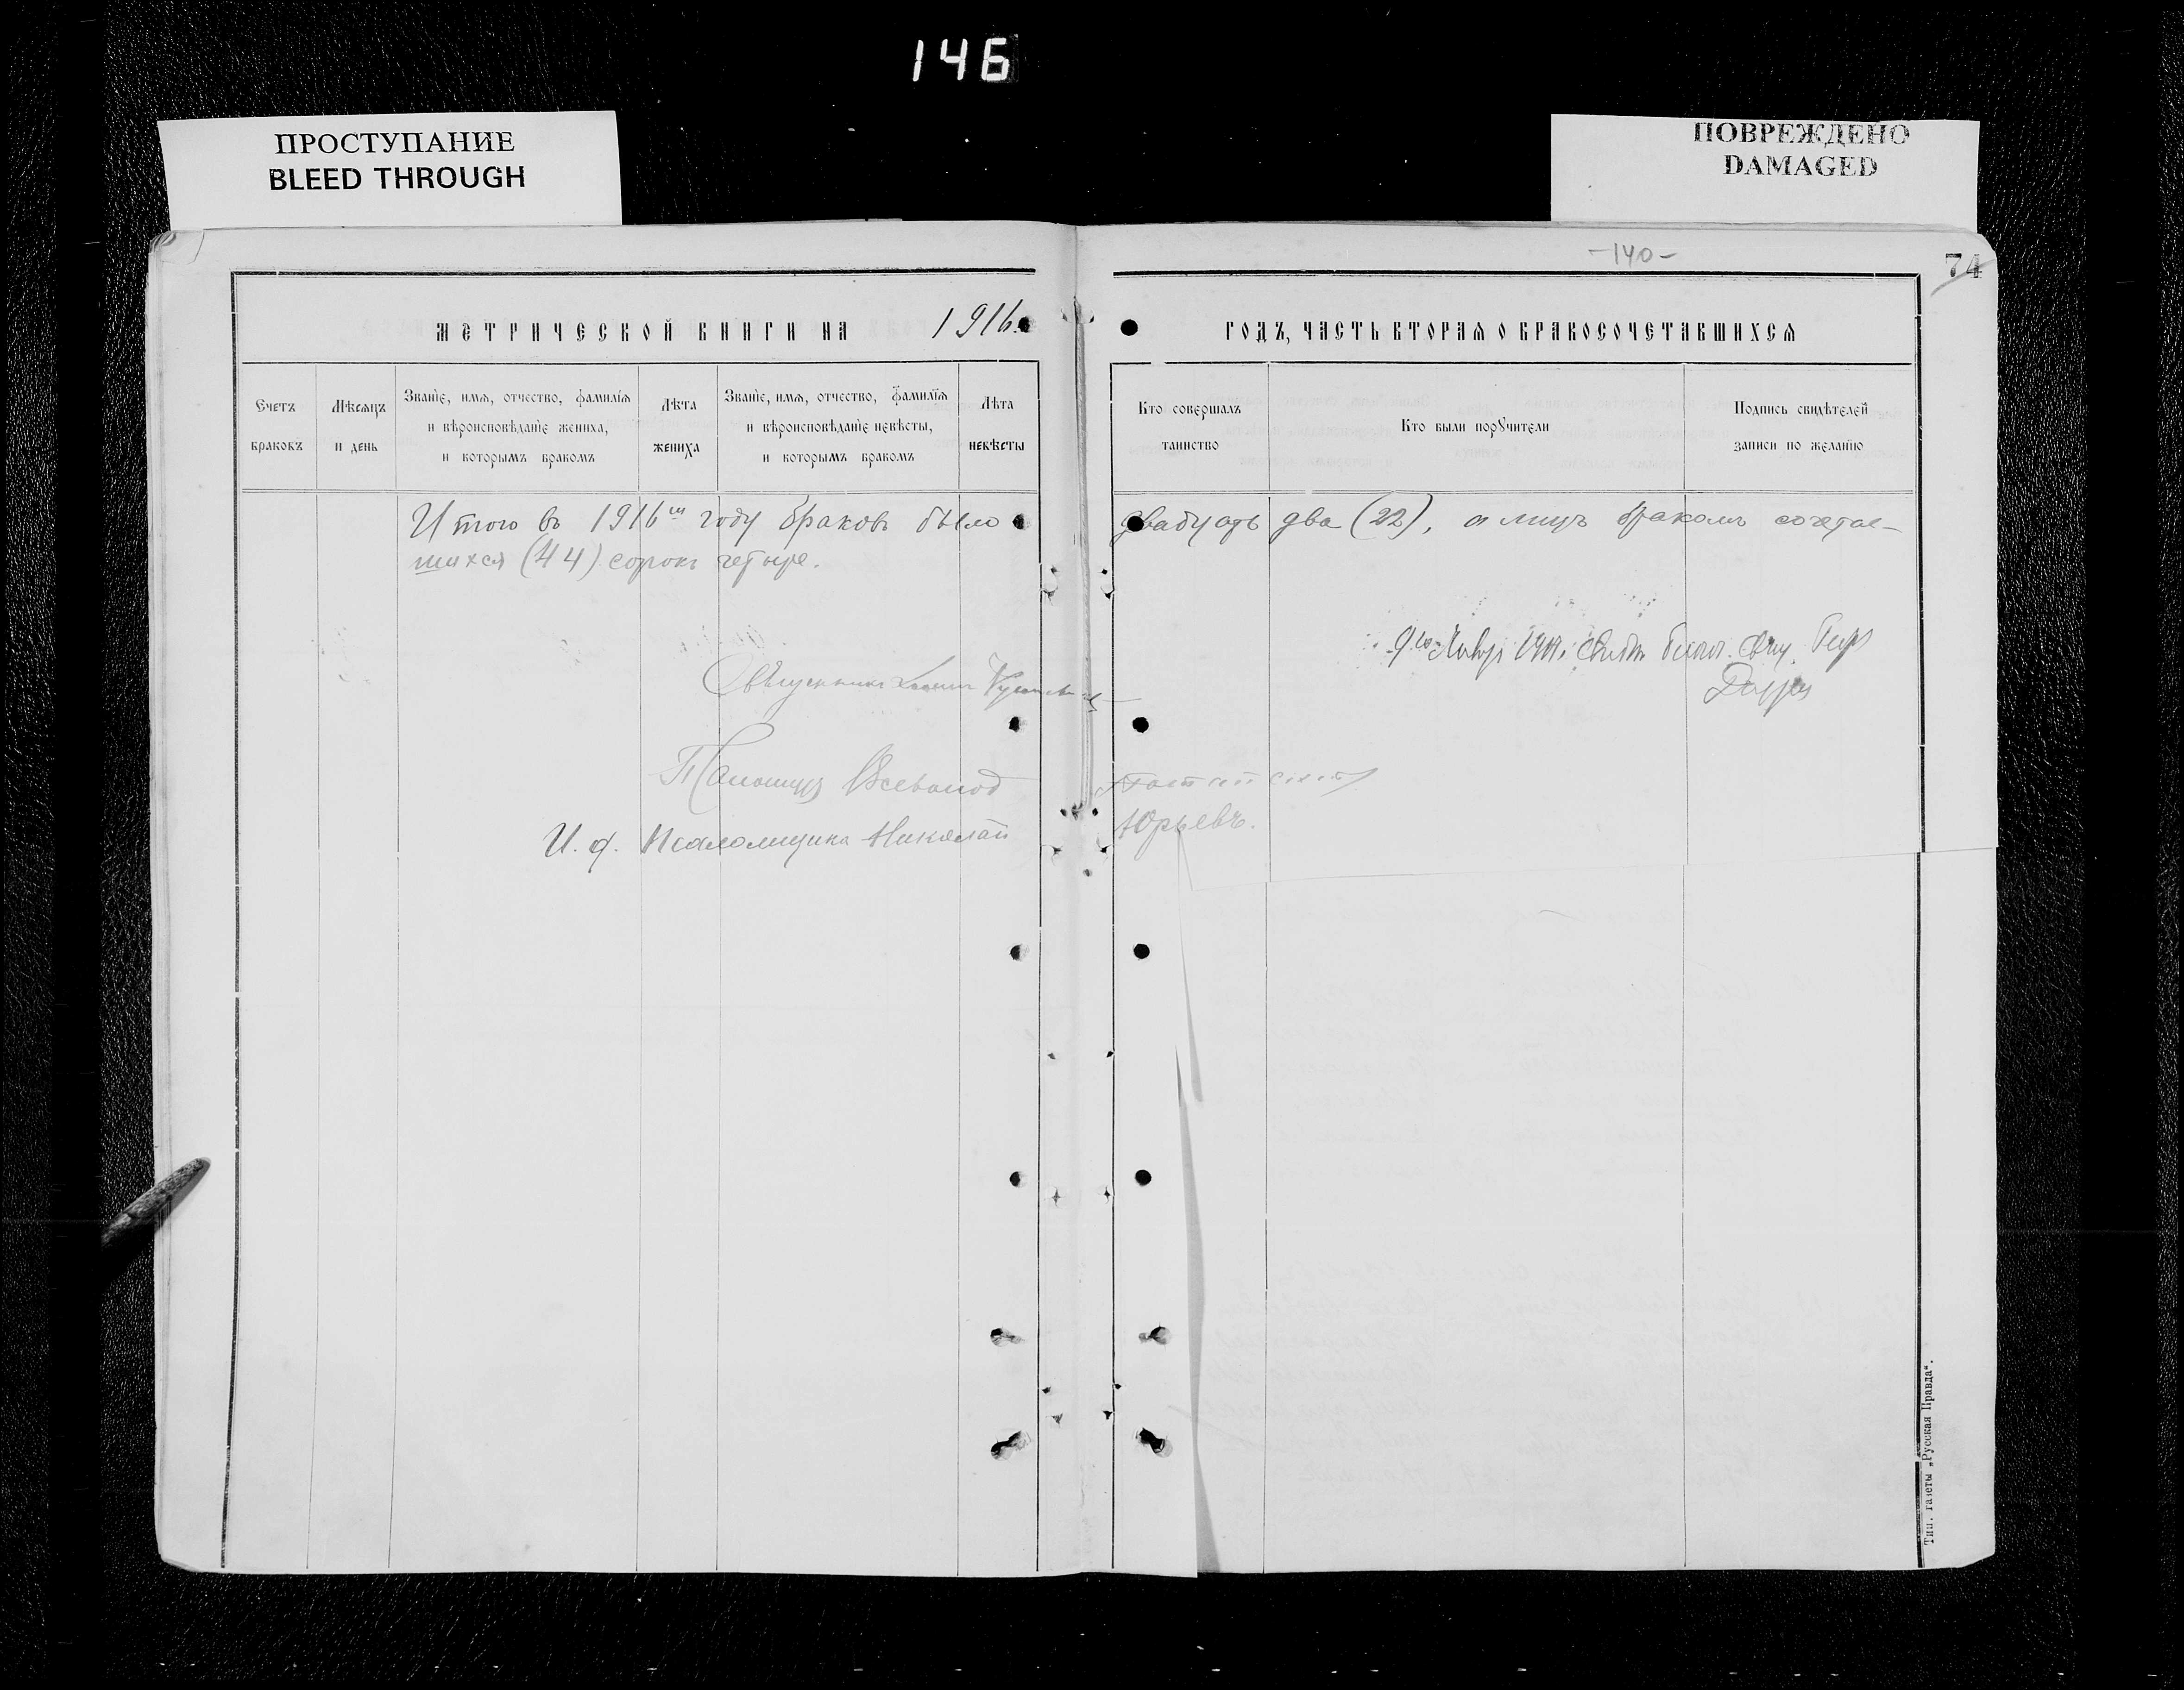 146
ПРОСТУПАНИЕ
BLEED THROUGH
ПОВРЕЖДЕНО
DAMAGED
-140-
74
МЕТРИЧЕСКОЙ КНИГИ НА 1916 ГОДЪ, ЧАСТЬ ВТОРАЯ О БРАКОСОЧЕТАВШИХСЯ
Счетъ браковъ
Мѣсяцъ и день
Званіе, имя, отчество, фамилія и вѣроисповѣданіе жениха, и которымъ бракомъ
Лѣта жениха
Званіе, имя, отчество, фамилія и вѣроисповѣданіе невѣсты, и которымъ бракомъ
Лѣта невѣсты
Кто совершалъ таинство
Кто были поручители
Подпись свидѣтелей записи по желанію
Итого въ 1916мъ году браковъ было двадцать два (22), а лицъ бракомъ сочетав-
шихся (44) сорокъ четыре.
Священникъ
Всеволод
И. д. Псаломщика Николай Юрьевъ.
Тип. газеты „Русская Правда“.